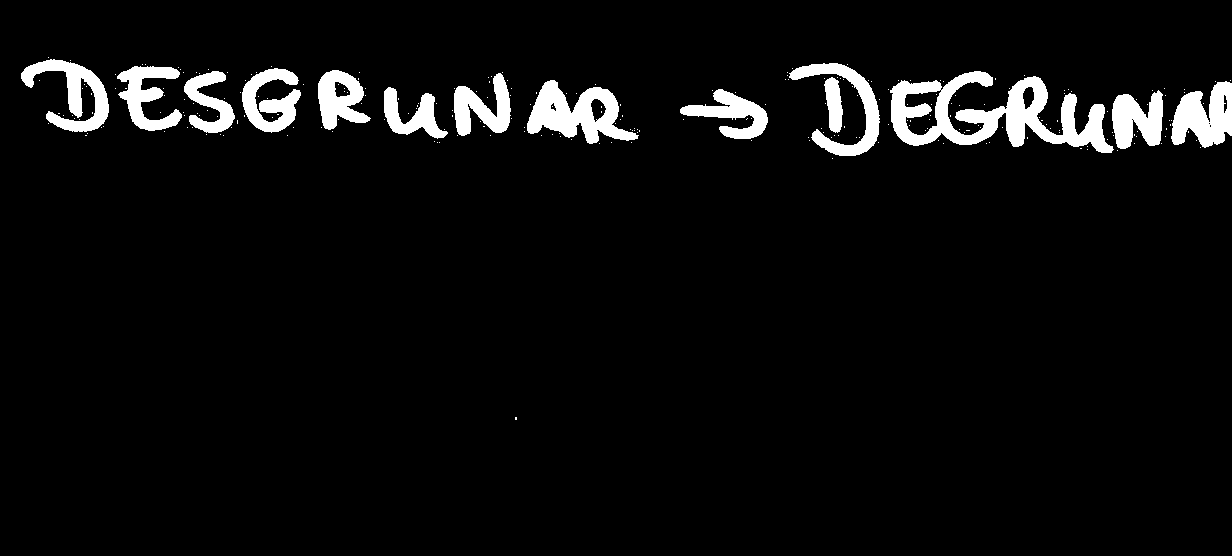 DESGRUNAR → DEGRUNAR